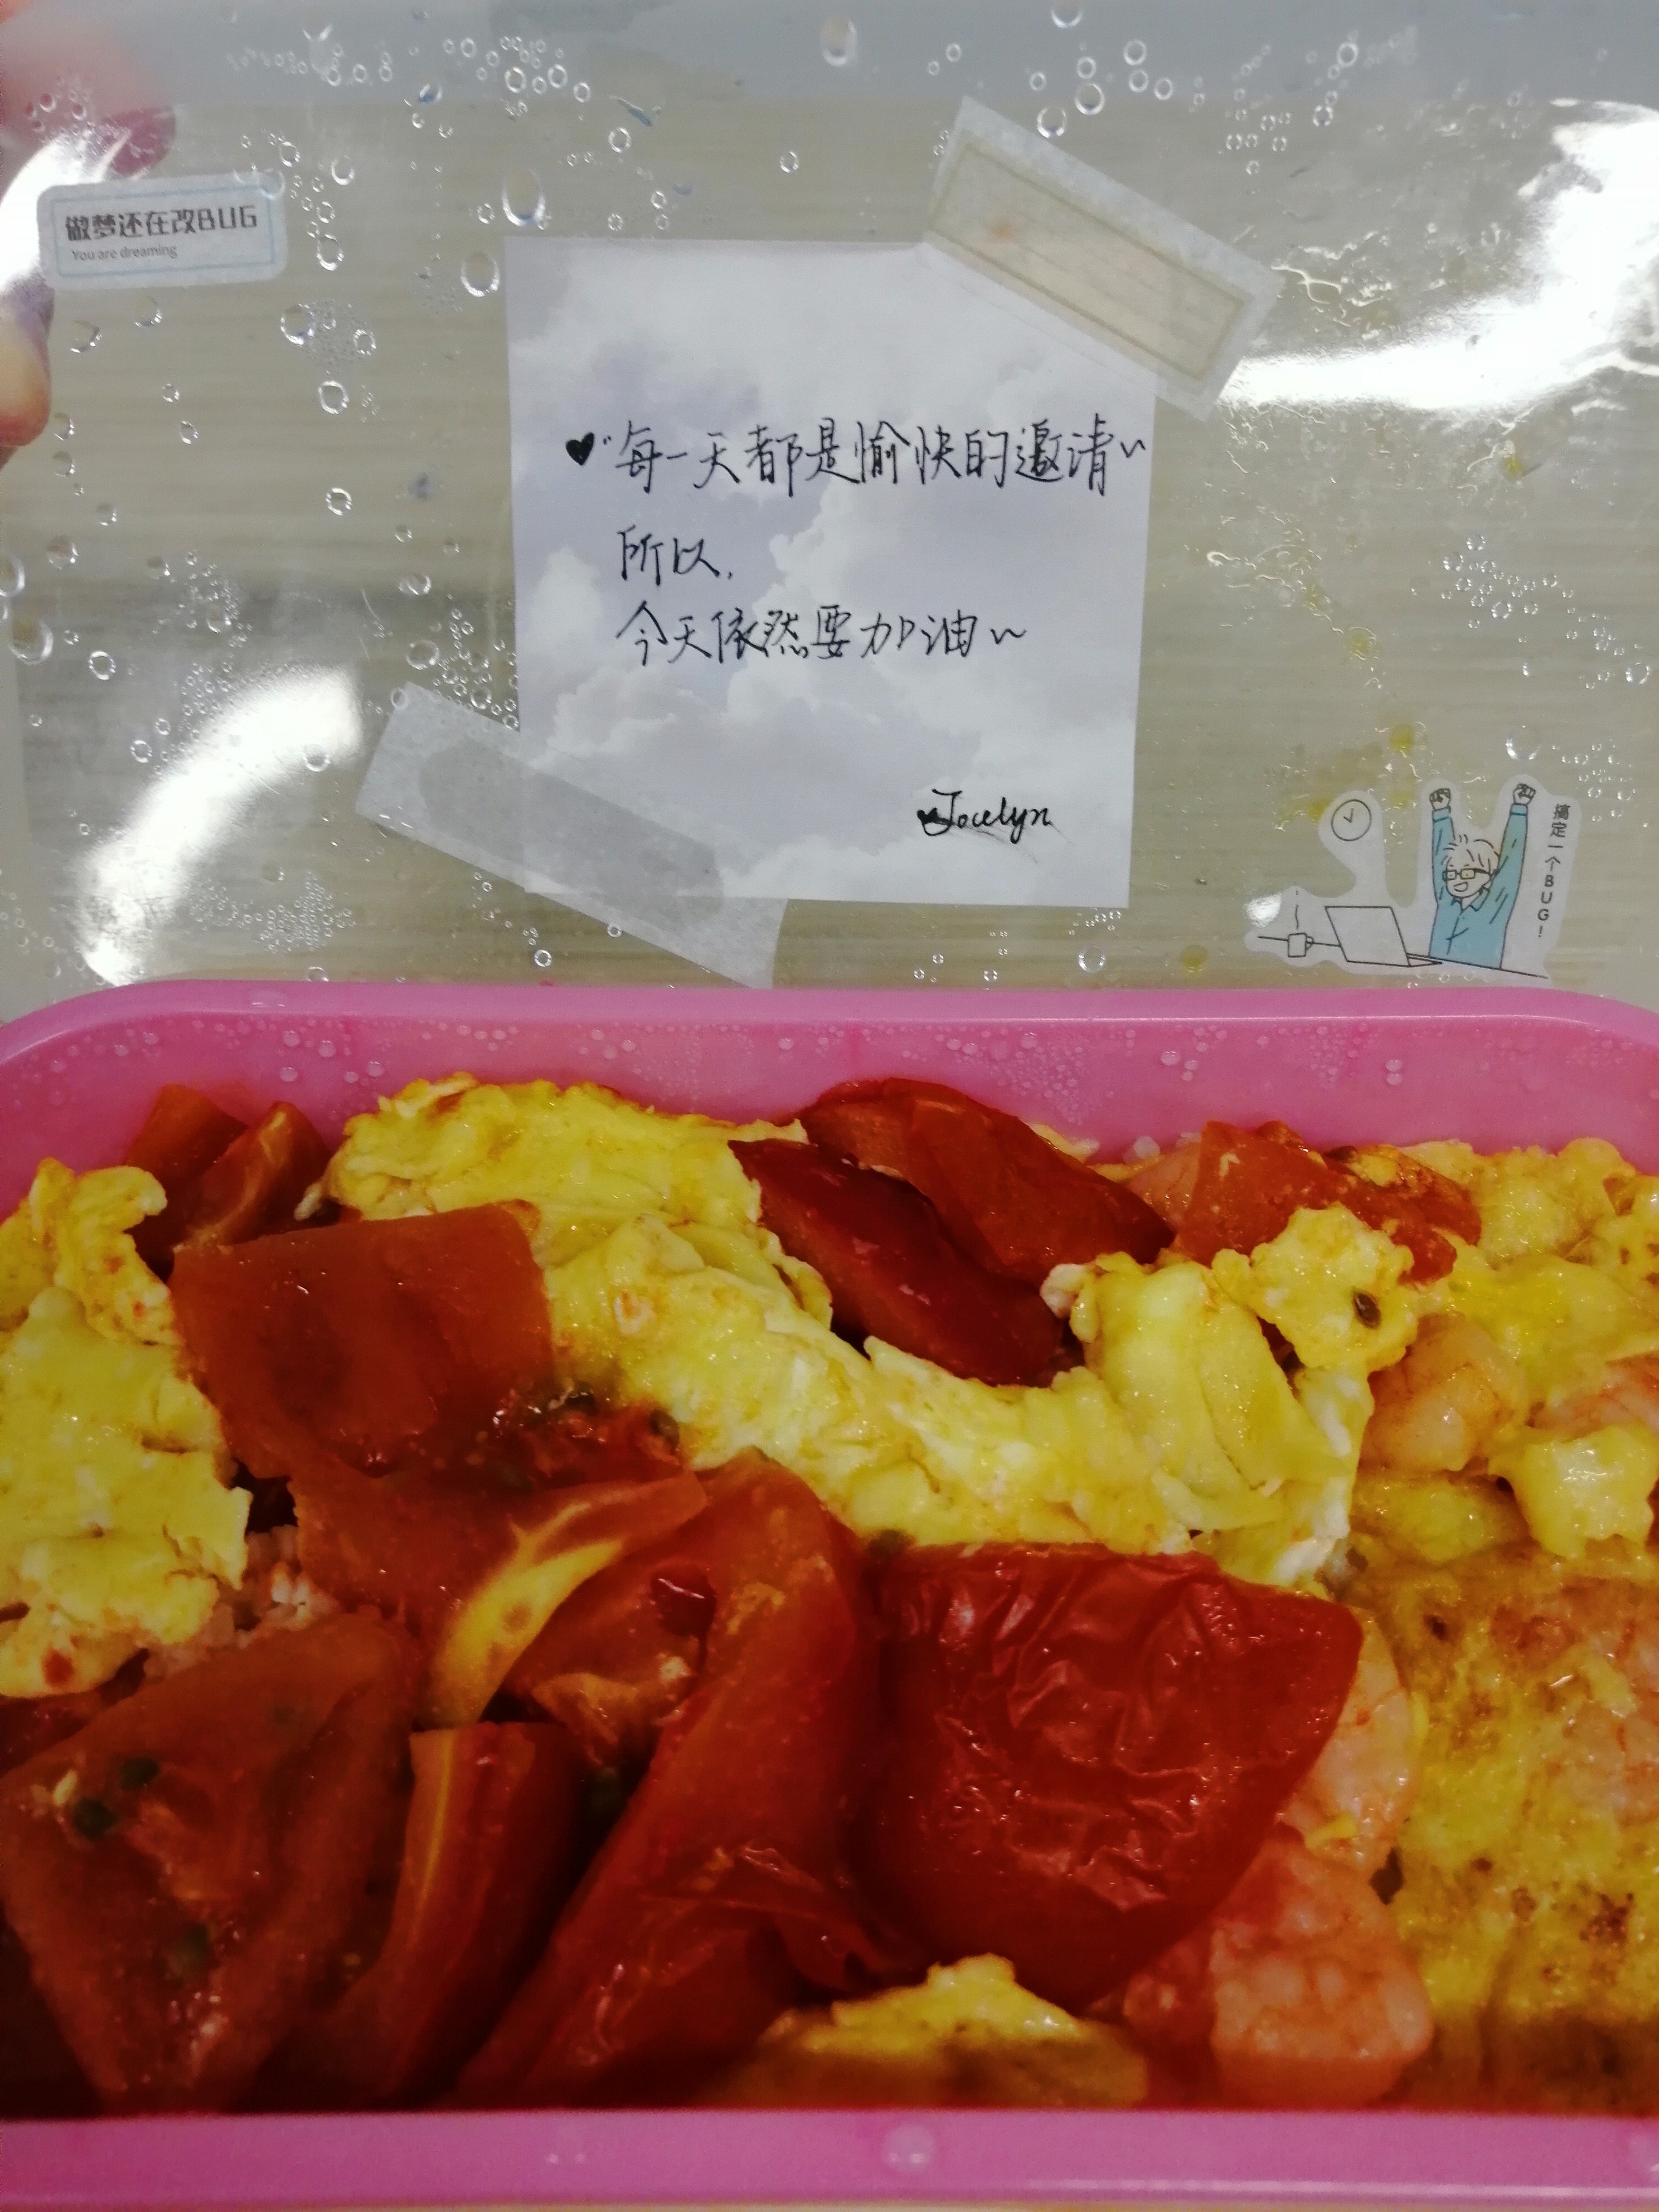 做梦还在改BUG
You are dreaming
♥“每一天都是愉快的邀请~
所以,
今天依然要加油~
♥Jocelyn
搞定一个BUG!